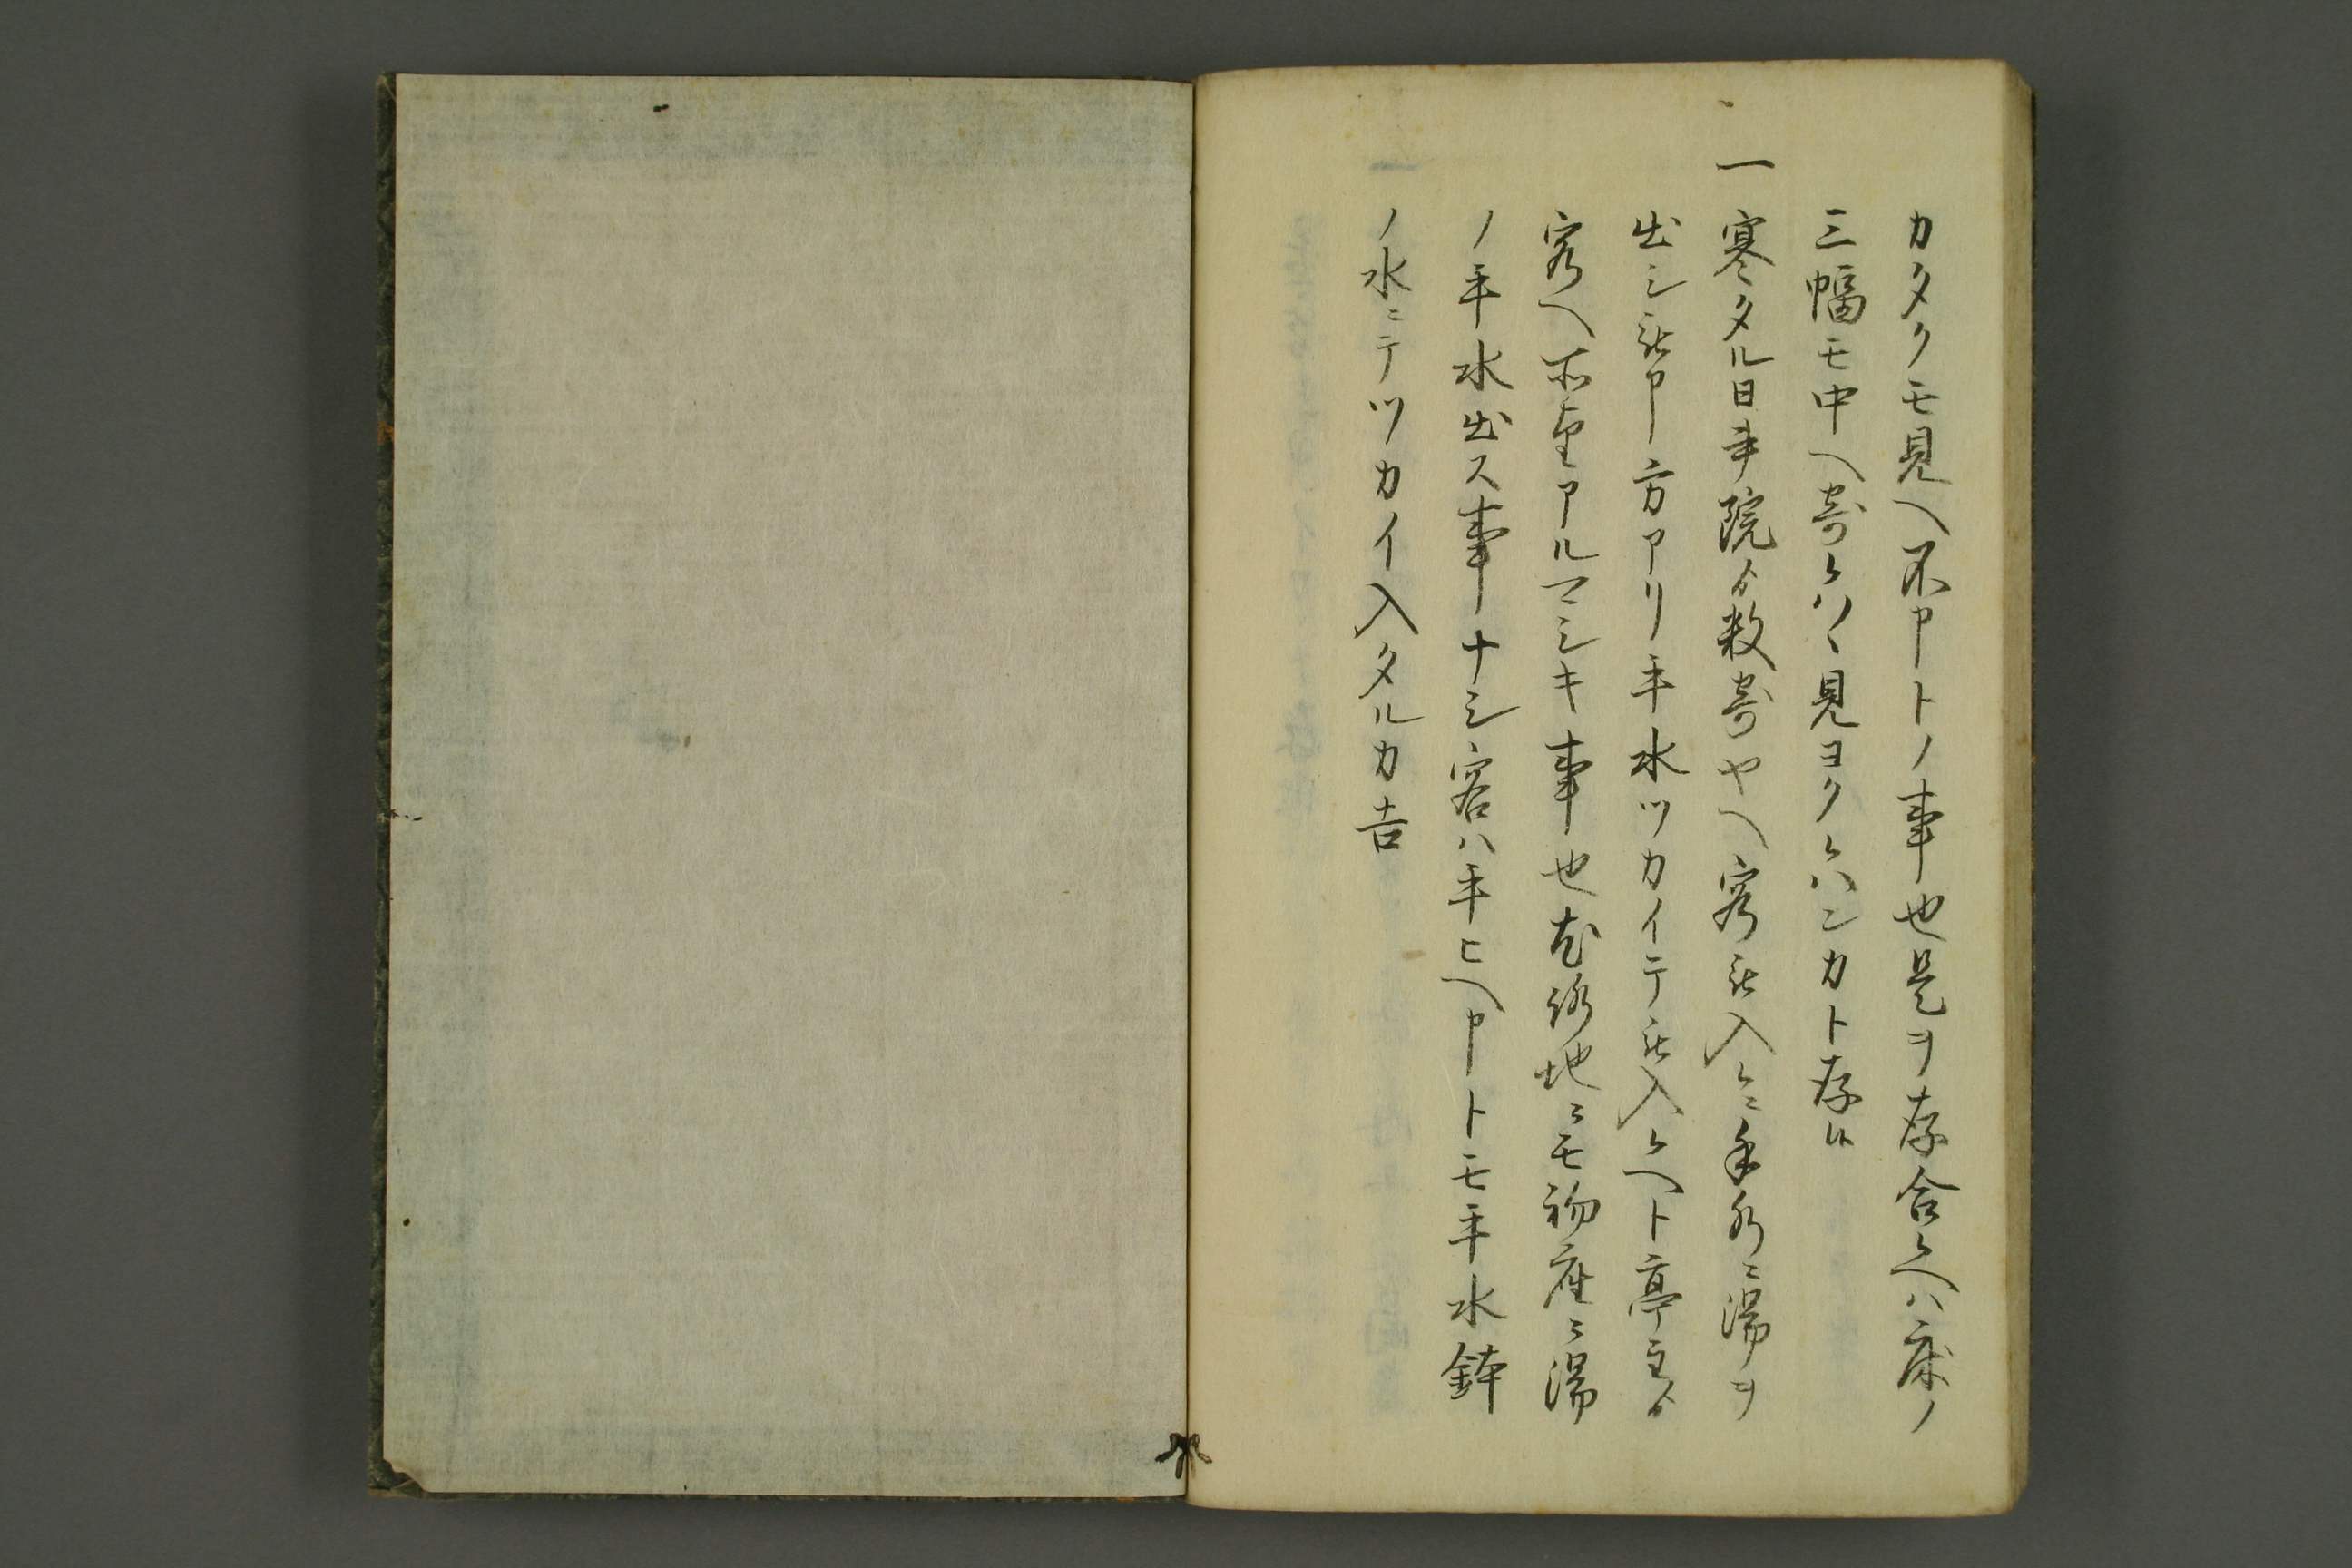 カタクモ見ヘ不申トノ事也是ヲ存合候ヘハ床ノ
三幅モ中ヘ寄候ハヽ見ヨク候ハンカト存候
一寒タル日書院ゟ数寄ヤヘ客被入候ニ手水ニ湯ヲ
出シ被申方アリ手水ツカイテ被入候ヘト亭主ゟ
客ヘ所望アルマシキ事也尤路地ニモ初座ニ湯
ノ手水出ス事ナシ客ハ手ヒヘ申トモ手水鉢
ノ水ニテツカイ入タルカ吉